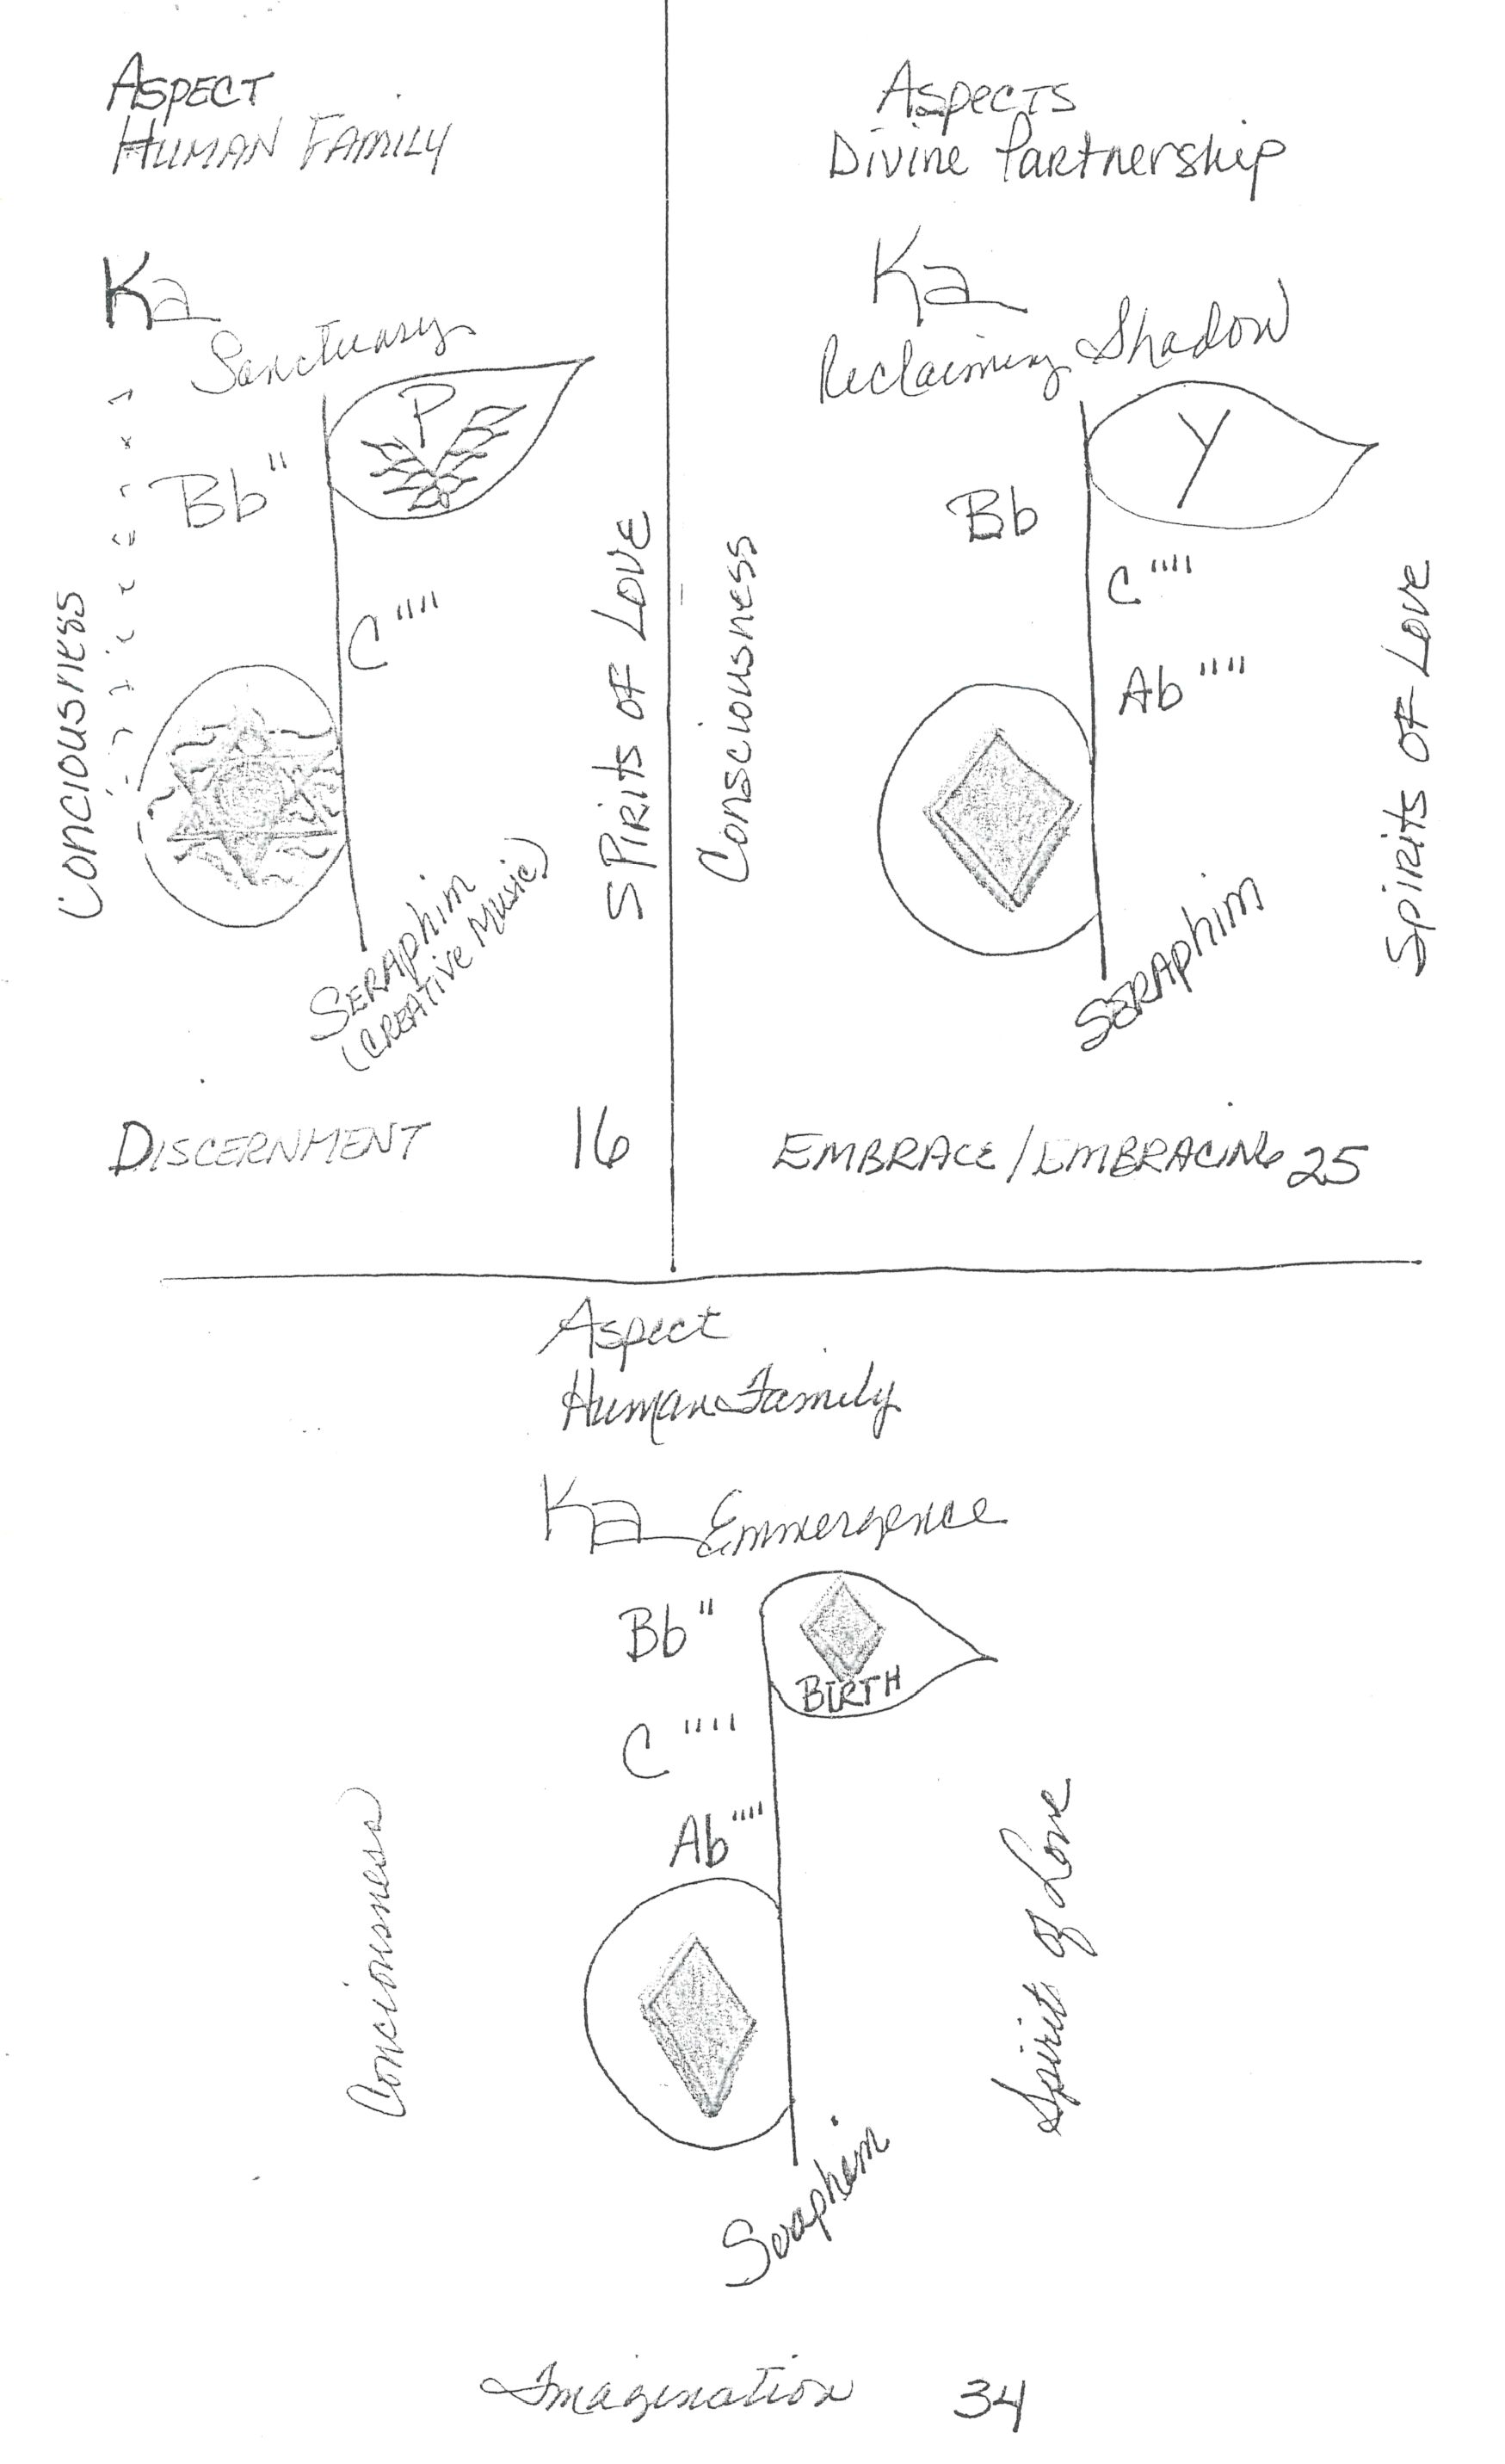 ASPECT
HUMAN FAMILY
Ka
Sanctuary
P
Bb"
C""
CONCIOUSNESS
SPIRITS OF LOVE
SERAPHIM
(CREATIVE MUSIC)
DISCERNMENT 16
Aspects
Divine Partnership
Ka
Reclaiming Shadow
Y
Bb
C""
Ab""
Consciousness
Spirits of Love
SERAPHIM
EMBRACE/EMBRACING 25
Aspect
Human Family
Ka Emmergence
Bb"
BIRTH
C""
Ab""
Conciousness
Spirits of Love
Seraphim
Imagination 34